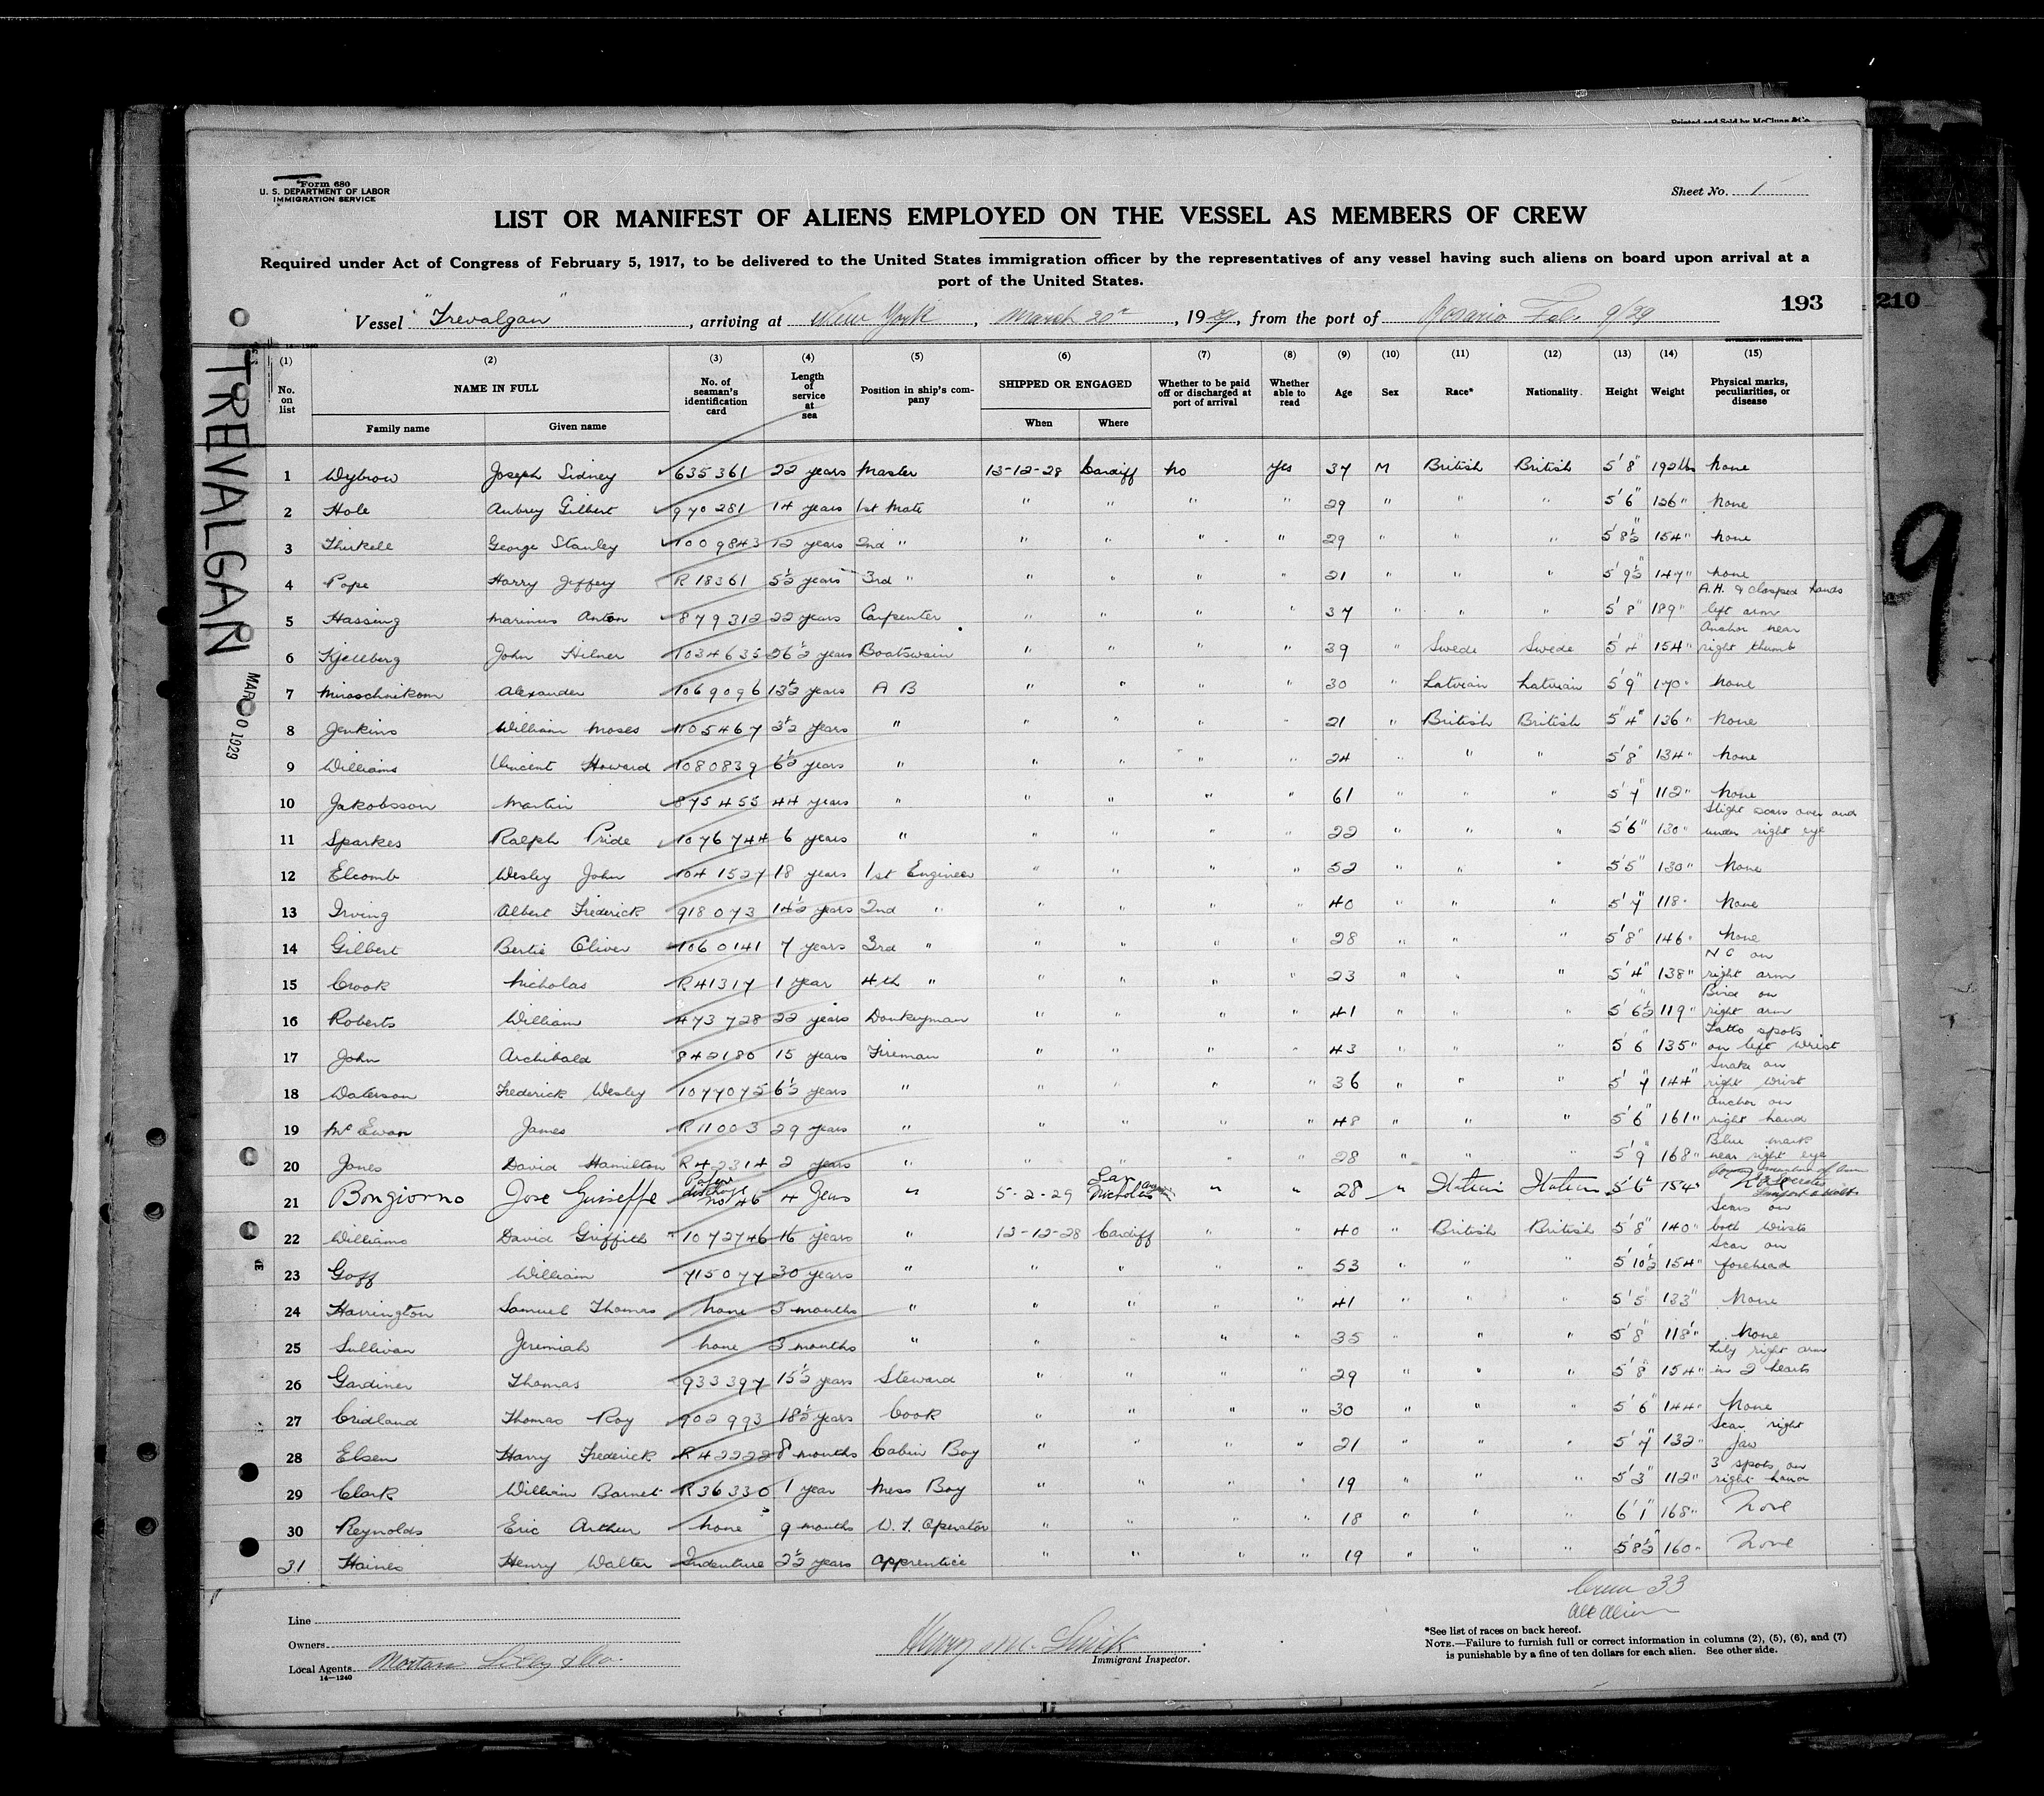 Printed and Sold by McClunn & Co
Form 680
U. S. DEPARTMENT OF LABOR
IMMIGRATION SERVICE
Sheet No. 1
LIST OR MANIFEST OF ALIENS EMPLOYED ON THE VESSEL AS MEMBERS OF CREW
Required under Act of Congress of February 5, 1917, to be delivered to the United States immigration officer by the representatives of any vessel having such aliens on board upon arrival at a
port of the United States.
193
210
Vessel "Trevalgan", arriving at New York, March 20th, 1929, from the port of Rosario Feb 9/29
TREVALGAN
MAR 0 1929
9
(1) (2) (3) (4) (5) (6) (7) (8) (9) (10) (11) (12) (13) (14) (15)
No. on list NAME IN FULL No. of seaman's identification card Length of service at sea Position in ship's company SHIPPED OR ENGAGED Whether to be paid off or discharged at port of arrival Whether able to read Age Sex Race* Nationality Height Weight Physical marks, peculiarities, or disease
Family name Given name When Where
1 Wybrow Joseph Sidney 635361 22 years Master 12-12-28 Cardiff No Yes 37 M British British 5'8" 192lbs None
2 Hole Aubrey Gilbert 970281 14 years 1st Mate " " " " 29 " " " 5'6" 126" None
3 Thirkell George Stanley 1009843 12 years 2nd " " " " " 29 " " " 5'8½" 154" None
4 Pope Harry Jeffery R18361 5½ years 3rd " " " " " 21 " " " 5'9½" 147" None
5 Hassing Marinus Anton 879312 22 years Carpenter " " " " 37 " " " 5'8" 189" A.H. & clasped hands left arm
6 Kjellberg John Hilner 1034635 26½ years Boatswain " " " " 39 " Swede Swede 5'4" 154" Anchor near right thumb
7 Miroschnikom Alexander 1069096 13½ years A B " " " " 30 " Latvian Latvian 5'9" 170" None
8 Jenkins William Moses 1105467 3½ years " " " " " 21 " British British 5'4" 136" None
9 Williams Vincent Howard 1080839 6½ years " " " " " 24 " " " 5'8" 134" None
10 Jakobsson Martin 875455 44 years " " " " " 61 " " " 5'7" 112" None
11 Sparkes Ralph Pride 1076744 6 years " " " " " 22 " " " 5'6" 130" Slight scars over and under right eye
12 Elcomb Wesley John 1041527 18 years 1st Engineer " " " " 52 " " " 5'5" 130" None
13 Irving Albert Frederick 918073 14½ years 2nd " " " " " 40 " " " 5'7" 118" None
14 Gilbert Bertie Oliver 1060141 7 years 3rd " " " " " 28 " " " 5'8" 146" None
15 Crook Nicholas R41317 1 year 4th " " " " " 23 " " " 5'4" 138" N C on right arm
16 Roberts William 473728 22 years Donkeyman " " " " 41 " " " 5'6½" 119" Bird on right arm
17 John Archibald 842186 15 years Fireman " " " " 43 " " " 5'6" 135" Tatto spots on left wrist
18 Waterson Frederick Wesley 1077075 6½ years " " " " " 36 " " " 5'7" 144" Snake on right wrist
19 McEwan James R11003 29 years " " " " " 48 " " " 5'6" 161" Anchor on right hand
20 Jones David Hamilton R42314 2 years " " " " " 28 " " " 5'9" 168" Blue mark near right eye
21 Bongiorno Jose Guiseffe discharge No 46 4 Years " 5-2-29 San Nicholas " " 28 " Italian Italian 5'6" 154"
22 Williams David Griffith 1072746 16 years " 12-12-28 Cardiff " " 40 " British British 5'8" 140" Scars on both wrists
23 Goff William 715077 30 years " " " " " 53 " " " 5'10½" 154" Scar on forehead
24 Harrington Samuel Thomas None 3 months " " " " " 41 " " " 5'5" 133" None
25 Sullivan Jeremiah None 3 months " " " " " 35 " " " 5'8" 118" None
26 Gardiner Thomas 933397 15½ years Steward " " " " 29 " " " 5'8" 154" Lily right arm in 2 hearts
27 Cridland Thomas Roy 902993 18½ years Cook " " " " 30 " " " 5'6" 144" None
28 Elsen Harry Frederick R42222 8 months Cabin Boy " " " " 21 " " " 5'7" 132" Scar right jaw
29 Clark William Barnet R36330 1 year Mess Boy " " " " 19 " " " 5'3" 112" 3 spots on right hand
30 Reynolds Eric Arthur None 9 months W. T. Operator " " " " 18 " " " 6'1" 168" None
31 Haines Henry Walter Indenture 2½ years Apprentice " " " " 19 " " " 5'8½" 160" None
Crew 33
All Alien
Line
Owners
Local Agents
14—1240
Immigrant Inspector.
*See list of races on back hereof.
NOTE.—Failure to furnish full or correct information in columns (2), (5), (6), and (7)
is punishable by a fine of ten dollars for each alien. See other side.